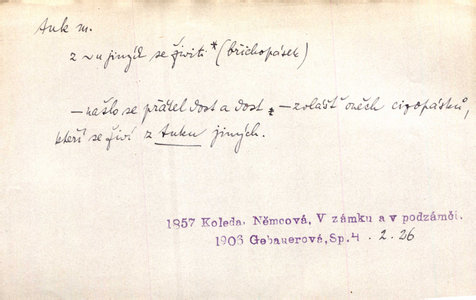 tuk m.
z ~u jiných se živiti * (břichopásek)
— našlo se přátel dost a dost, — zvlášť oněch cizopásků,
kteří se živí z tuku jiných.
1857 Koleda. Němcová, V zámku a v podzámčí.
1906 Gebauerová, Sp. 4 . 2. 26